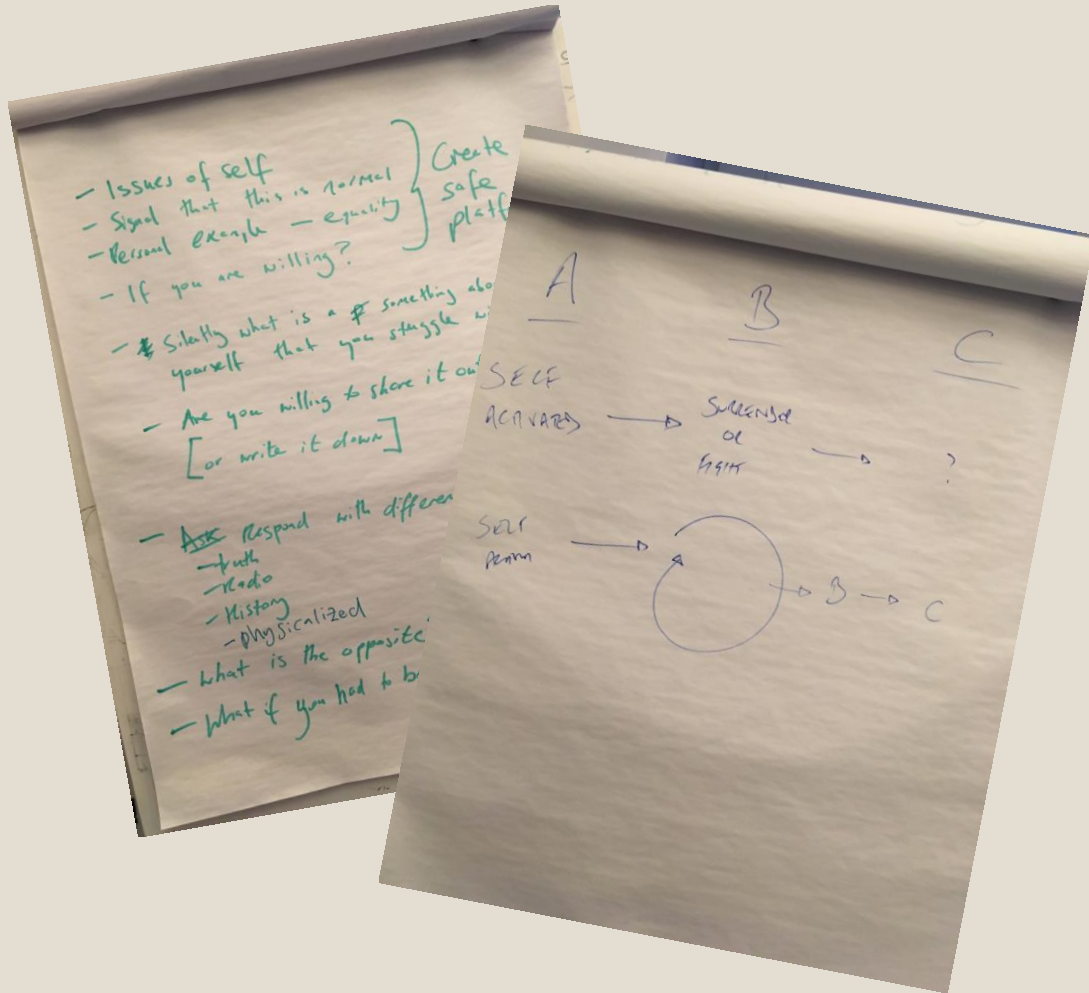 - Issues of self
- Signal that this is normal
- Personal example - equality
Create
safe
platf
- If you are willing?
- Silently what is a something abo
yourself that you struggle wi
- Are you willing to share it ou
[or write it down]
- Ask Respond with differen
- truth
- Radio
- History
- physicalized
- What is the opposite
- What if you had to b
A
B
C
SELF
ACTIVATED
SURRENDER
OR
FIGHT
?
SELF
B
C